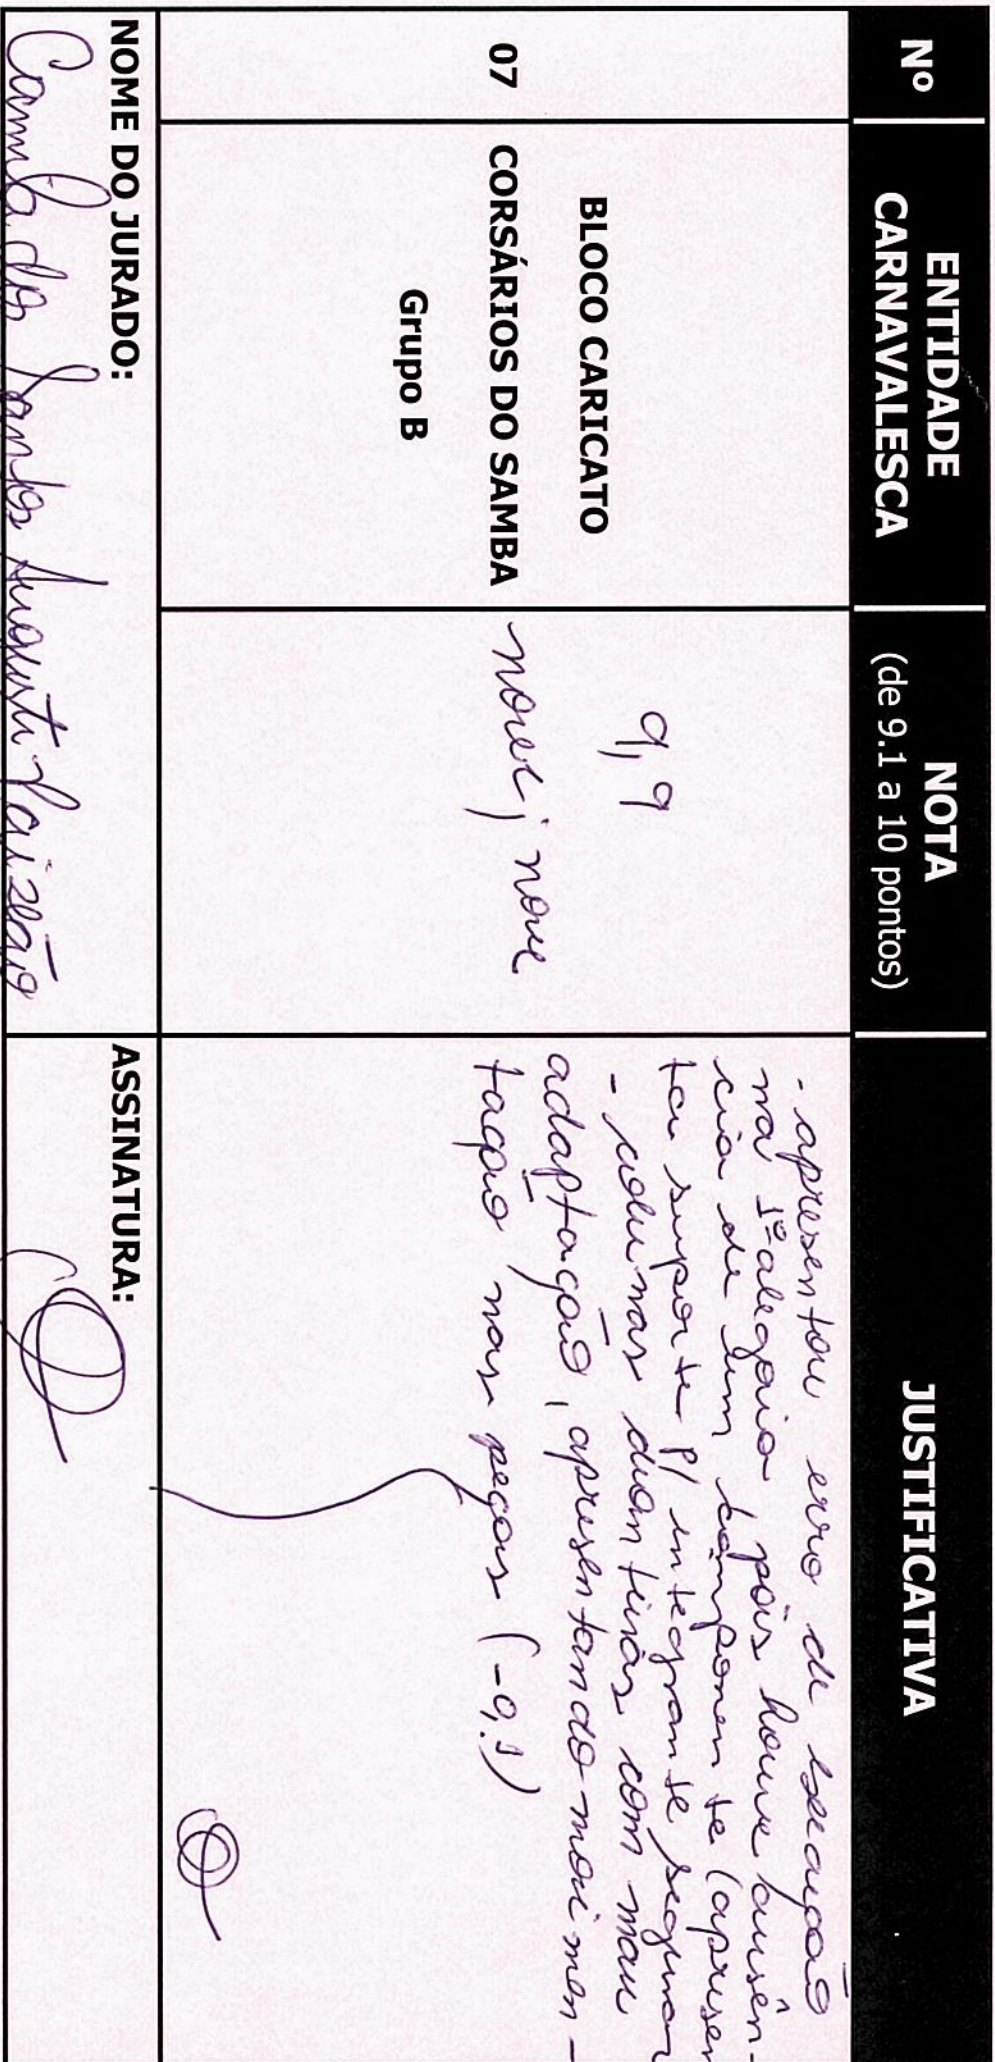 Nº
ENTIDADE
CARNAVALESCA
NOTA
(de 9.1 a 10 pontos)
JUSTIFICATIVA
07
BLOCO CARICATO
CORSÁRIOS DO SAMBA
Grupo B
9,9
nove, nove
- apresentou erro de execução
na 1º alegoria, pois houve ausên-
cia de um componente (apresen
tou suporte p/ integrante segurar
- colunas dianteiras com mau
adaptação, apresentando movimen-
tação nas peças (-0.1)
NOME DO JURADO:
Camila dos Santos Augusti Paixão
ASSINATURA: